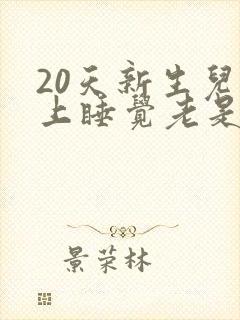 20天新生兒
上睡覺老是
景荣林